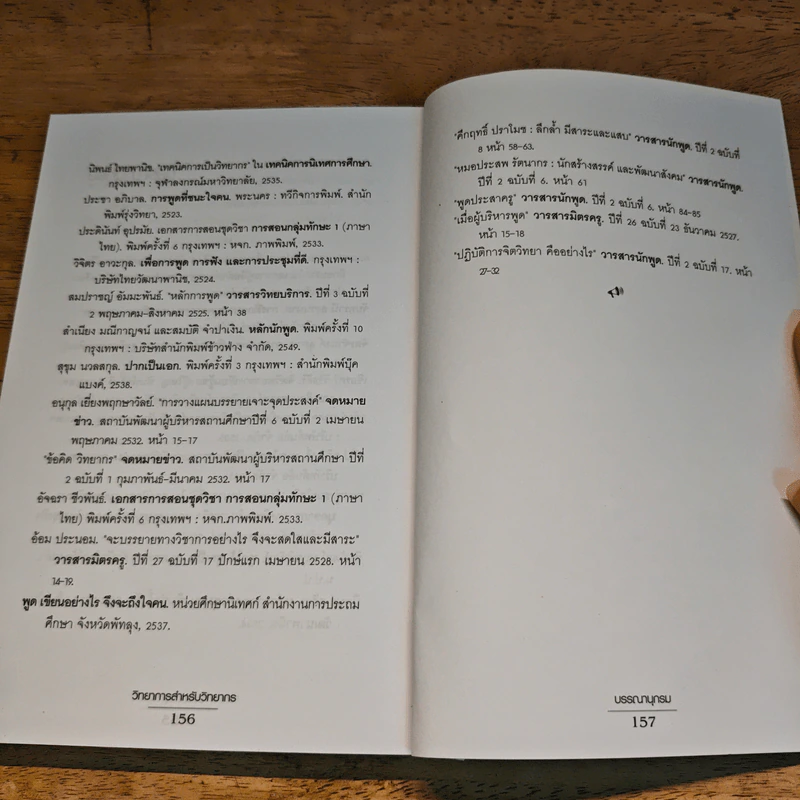 นิพนธ์ ไทยพานิช. "เทคนิคการเป็นวิทยากร" ใน เทคนิคการนิเทศการศึกษา.
กรุงเทพฯ : จุฬาลงกรณ์มหาวิทยาลัย, 2535.
ประชา อภิบาล. การพูดที่ชนะใจคน. พระนคร : ทวีกิจการพิมพ์. สำนัก
พิมพ์รุ่งวิทยา, 2523.
ประดินันท์ อุปรมัย. เอกสารการสอนชุดวิชา การสอนกลุ่มทักษะ 1 (ภาษา
ไทย). พิมพ์ครั้งที่ 6 กรุงเทพฯ : หจก. ภาพพิมพ์, 2533.
วิจิตร อาวะกุล. เพื่อการพูด การฟัง และการประชุมที่ดี. กรุงเทพฯ :
บริษัทไทยวัฒนาพานิช, 2524.
สมปราชญ์ อัมมะพันธ์. "หลักการพูด" วารสารวิทยบริการ. ปีที่ 3 ฉบับที่
2 พฤษภาคม-สิงหาคม 2525. หน้า 38
สำเนียง มณีกาญจน์ และสมบัติ จำปาเงิน. หลักนักพูด. พิมพ์ครั้งที่ 10
กรุงเทพฯ : บริษัทสำนักพิมพ์ข้าวฟ่าง จำกัด, 2549.
สุขุม นวลสกุล. ปากเป็นเอก. พิมพ์ครั้งที่ 3 กรุงเทพฯ : สำนักพิมพ์บุ๊ค
แบงค์, 2538.
อนุกุล เยี่ยงพฤกษาวัลย์. "การวางแผนบรรยายเจาะจุดประสงค์" จดหมาย
ข่าว. สถาบันพัฒนาผู้บริหารสถานศึกษาปีที่ 6 ฉบับที่ 2 เมษายน
พฤษภาคม 2532. หน้า 15-17
"ข้อคิด วิทยากร" จดหมายข่าว. สถาบันพัฒนาผู้บริหารสถานศึกษา ปีที่
2 ฉบับที่ 1 กุมภาพันธ์-มีนาคม 2532. หน้า 17
อัจฉรา ชีวพันธ์. เอกสารการสอนชุดวิชา การสอนกลุ่มทักษะ 1 (ภาษา
ไทย) พิมพ์ครั้งที่ 6 กรุงเทพฯ : หจก.ภาพพิมพ์. 2533.
อ้อม ประนอม. "จะบรรยายทางวิชาการอย่างไร จึงจะสดใสและมีสาระ"
วารสารมิตรครู. ปีที่ 27 ฉบับที่ 17 ปักษ์แรก เมษายน 2528. หน้า
14-19.
พูด เขียนอย่างไร จึงจะถึงใจคน. หน่วยศึกษานิเทศก์ สำนักงานการประถม
ศึกษา จังหวัดพัทลุง, 2537.
วิทยาการสำหรับวิทยากร
156
"คึกฤทธิ์ ปราโมช : ลึกล้ำ มีสาระและแสบ" วารสารนักพูด. ปีที่ 2 ฉบับที่
8 หน้า 58-63.
"หมอประสพ รัตนากร : นักสร้างสรรค์ และพัฒนาสังคม" วารสารนักพูด.
ปีที่ 2 ฉบับที่ 6. หน้า 61
"พูดประสาครู" วารสารนักพูด. ปีที่ 2 ฉบับที่ 6. หน้า 84-85
"เมื่อผู้บริหารพูด" วารสารมิตรครู. ปีที่ 26 ฉบับที่ 23 ธันวาคม 2527.
หน้า 15-18
"ปฏิบัติการจิตวิทยา คืออย่างไร" วารสารนักพูด. ปีที่ 2 ฉบับที่ 17. หน้า
27-32
บรรณานุกรม
157